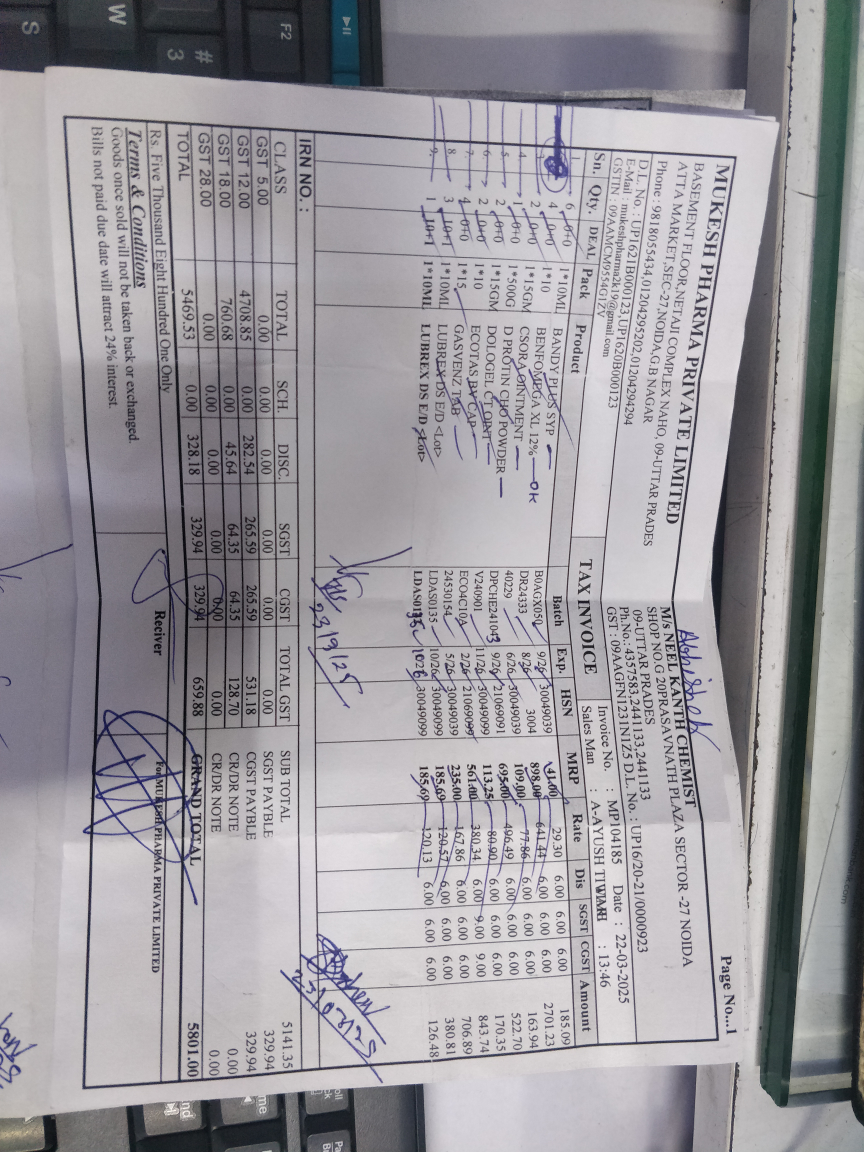 Page No...1
MUKESH PHARMA PRIVATE LIMITED
BASEMENT FLOOR,NETAJI COMPLEX NAHO, 09-UTTAR PRADES
ATTA MARKET,SEC-27,NOIDA,G.B NAGAR
Phone : 9818055434,01204295202,01204294294
D.L. No. : UP1621B000123,UP1620B000123
E-Mail : mukeshpharma2k19@gmail.com
GSTIN : 09AAMCM9554G1ZV
Abhishek
M/s NEEL KANTH CHEMIST
SHOP NO.G 20PRASAVNATH PLAZA SECTOR -27 NOIDA
09-UTTAR PRADES
Ph.No.: 4357583,2441133,2441133
GST : 09AAGFN1231N1Z5 D.L. No. : UP16/20-21/0000923
TAX INVOICE
Invoice No. : MP104185 Date : 22-03-2025
Sales Man : A-AYUSH TIWARI : 13:46
Sn. Qty. DEAL Pack Product Batch Exp. HSN MRP Rate Dis SGST CGST Amount
1 6 0+0 1*10ML BANDY PLUS SYP B0AGX050 9/26 30049039 41.00 29.30 6.00 6.00 6.00 185.09
4 0+0 1*10 BENFOMEGA XL 12% OK DR24333 8/26 3004 898.00 641.44 6.00 6.00 6.00 2701.23
2 0+0 1*15GM CSORA OINTMENT 40229 6/26 30049039 109.00 77.86 6.00 6.00 6.00 163.94
4 1 0+0 1*500G D PROTIN CHO POWDER DPCHE241043 9/26 21069091 695.00 496.49 6.00 6.00 6.00 522.70
5 2 0+0 1*15GM DOLOGEL CT OINT V240901 11/26 30049099 113.25 80.90 6.00 6.00 6.00 170.35
6 2 0+0 1*10 ECOTAS BV CAP ECO4C10A 2/26 21069099 561.00 380.34 6.00 9.00 9.00 843.74
7 4 0+0 1*15 GASVENZ TAB 24530154 5/26 30049039 235.00 167.86 6.00 6.00 6.00 706.89
8 3 10+1 1*10ML LUBREX DS E/D <Lot> LDAS0135 10/26 30049099 185.69 120.57 6.00 6.00 6.00 380.81
9 1 10+1 1*10ML LUBREX DS E/D <Lot> LDAS0135 10/26 30049099 185.69 120.13 6.00 6.00 6.00 126.48
23/9/25
23/03/25
IRN NO. :
CLASS TOTAL SCH. DISC. SGST CGST TOTAL GST
GST 5.00 0.00 0.00 0.00 0.00 0.00 0.00
GST 12.00 4708.85 0.00 282.54 265.59 265.59 531.18
GST 18.00 760.68 0.00 45.64 64.35 64.35 128.70
GST 28.00 0.00 0.00 0.00 0.00 0.00 0.00
TOTAL 5469.53 0.00 328.18 329.94 329.94 659.88
SUB TOTAL 5141.35
SGST PAYBLE 329.94
CGST PAYBLE 329.94
CR/DR NOTE 0.00
CR/DR NOTE 0.00
GRAND TOTAL 5801.00
Rs. Five Thousand Eight Hundred One Only
Terms & Conditions
Goods once sold will not be taken back or exchanged.
Bills not paid due date will attract 24% interest.
Reciver
For MUKESH PHARMA PRIVATE LIMITED
F2
W
#
3
S